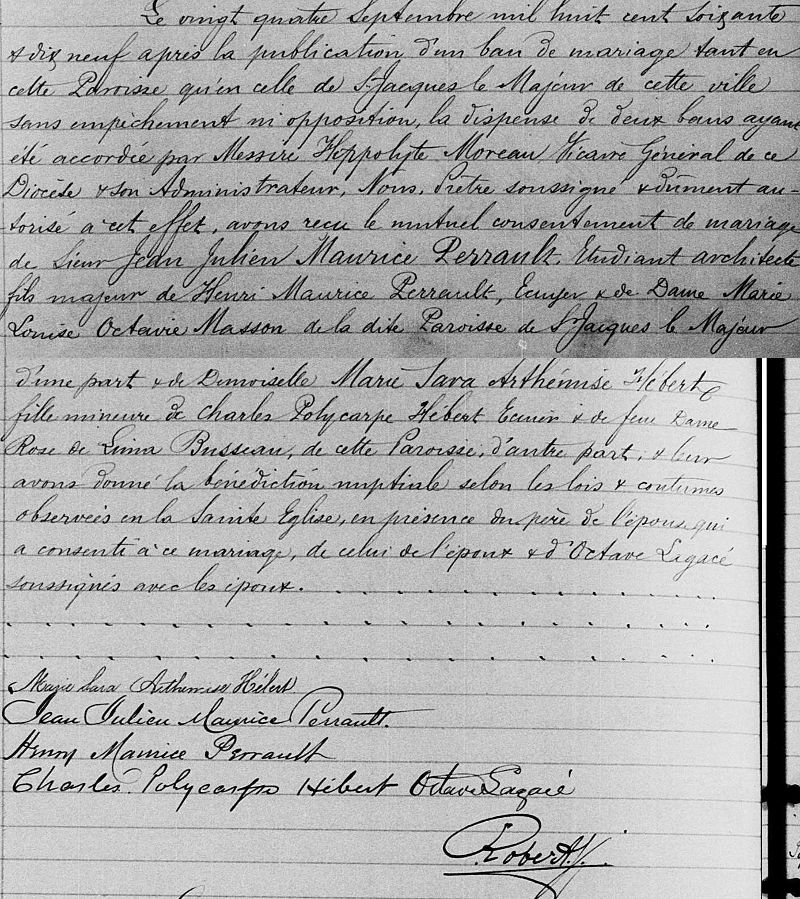 Le vingt quatre Septembre mil huit cent soixante
& dix neuf après la publication d'un ban de mariage tant en
cette Paroisse qu'en celle de St Jacques le Majeur de cette ville
sans empêchement ni opposition, la dispense de deux bans ayant
été accordée par Messire Hippolyte Moreau Vicaire Général de ce
Diocèse & son Administrateur, Nous, Prêtre soussigné & dûment au-
torisé à cet effet, avons reçu le mutuel consentement de mariage
de Sieur Jean Julien Maurice Perrault, Etudiant architecte
fils majeur de Henri Maurice Perrault, Ecuyer & de Dame Marie
Louise Octavie Masson de la dite Paroisse de St Jacques le Majeur
d'une part & de Demoiselle Marie Sara Arthémise Hébert
fille mineure de Charles Polycarpe Hébert Ecuier & de feue Dame
Rose de Lima Busseau, de cette Paroisse, d'autre part, & leur
avons donné la bénédiction nuptiale selon les lois & coutumes
observées en la Sainte Eglise, en présence du père de l'épouse qui
a consenti à ce mariage, de celui de l'époux & d'Octave Lagacé
soussignés avec les époux.
Marie Sara Arthemise Hébert
Jean Julien Maurice Perrault.
Henry Maurice Perrault
Charles Polycarpe Hébert Octave Lagacé
Robert